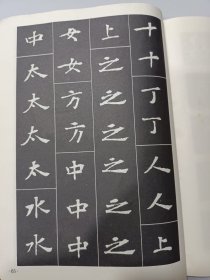 十十丁丁人人上
上之之之之之之
女女方方中中中
中太太太太水水
65